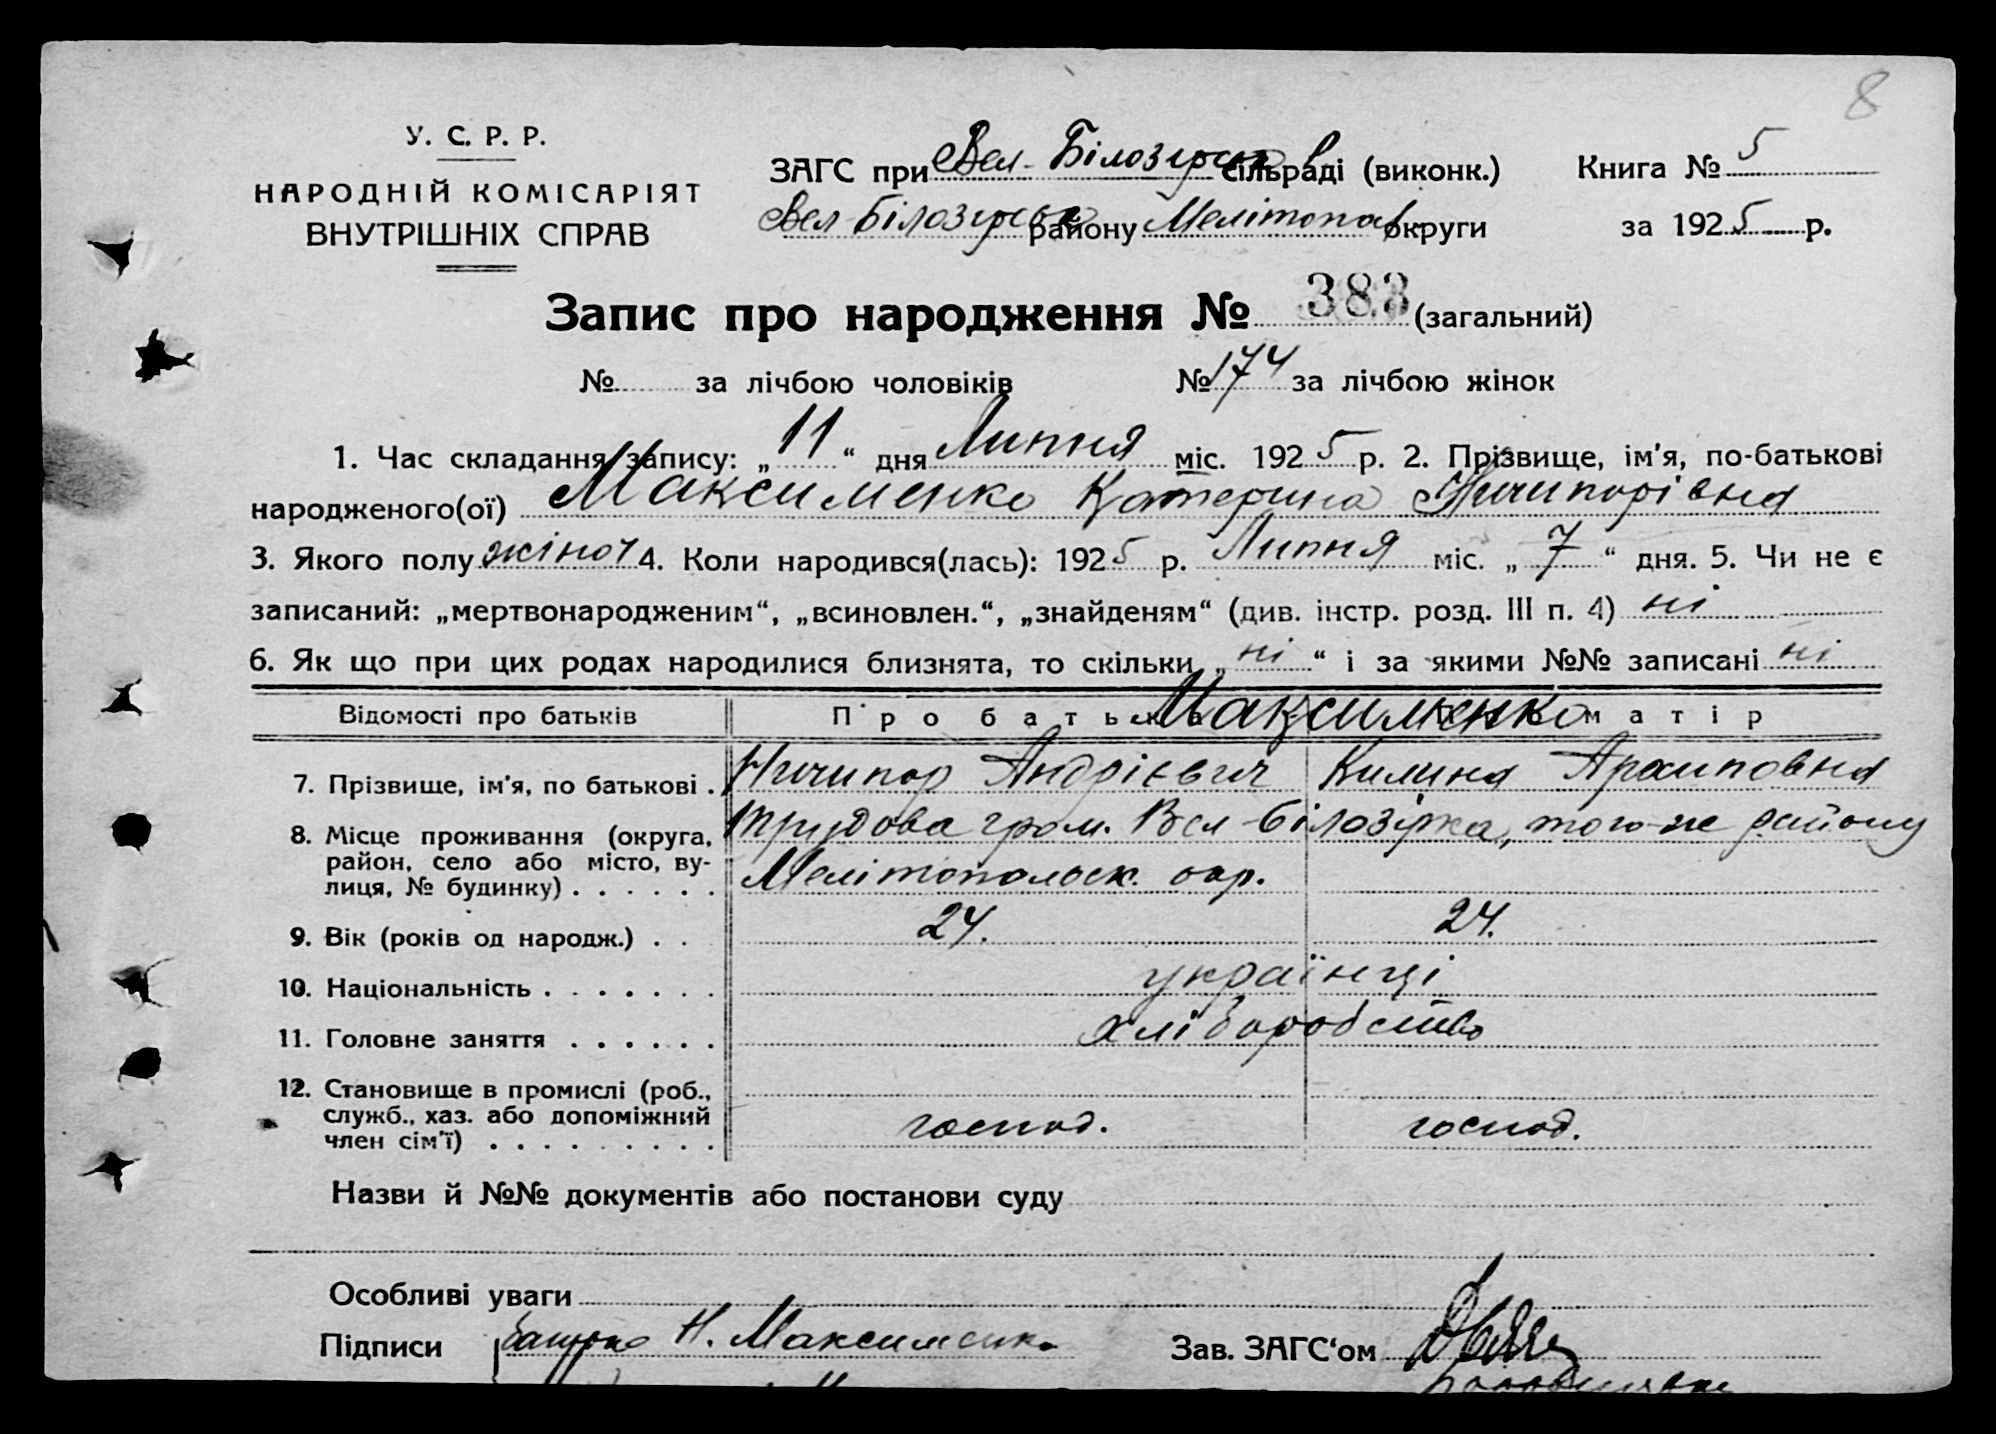 8
У. С. Р. Р.
НАРОДНІЙ КОМІСАРІЯТ
ВНУТРІШНІХ СПРАВ
ЗАГС при Вел-Білозірськ сільраді (виконк.) Книга № 5
Вел-Білозірськ району Мелітопол округи за 1925 р.
Запис про народження № 383 (загальний)
№ за лічбою чоловіків № 174 за лічбою жінок
1. Час складання запису: „11“ дня Липня міс. 1925 р. 2. Прізвище, ім'я, по-батькові
народженого(ої) Максименко Катерина Ничипорівна
3. Якого полу жіноч 4. Коли народився(лась): 1925 р. Липня міс. „7“ дня. 5. Чи не є
записаний: „мертвонародженим“, „всиновлен.“, „знайденям“ (див. інстр. розд. III п. 4) ні
6. Як що при цих родах народилися близнята, то скільки „ні“ і за якими №№ записані ні
Відомості про батьків Про батька Максименко матір
7. Прізвище, ім'я, по батькові . Ничипор Андрієвич Килина Архиповна
8. Місце проживання (округа, Трудова гром. Вел-білозірка, того-же району
район, село або місто, ву-
лиця, № будинку) . . . . . . Мелітопольск. окр.
9. Вік (років од народж.) . . 24. 24.
10. Національність . . . . . . . українці
11. Головне заняття . . . . . . хліборобство
12. Становище в промислі (роб.,
служб., хаз. або допоміжний господ. господ.
член сім'ї) . . . . . . . . .
Назви й №№ документів або постанови суду
Особливі уваги
Підписи батько Н. Максименко Зав. ЗАГС'ом